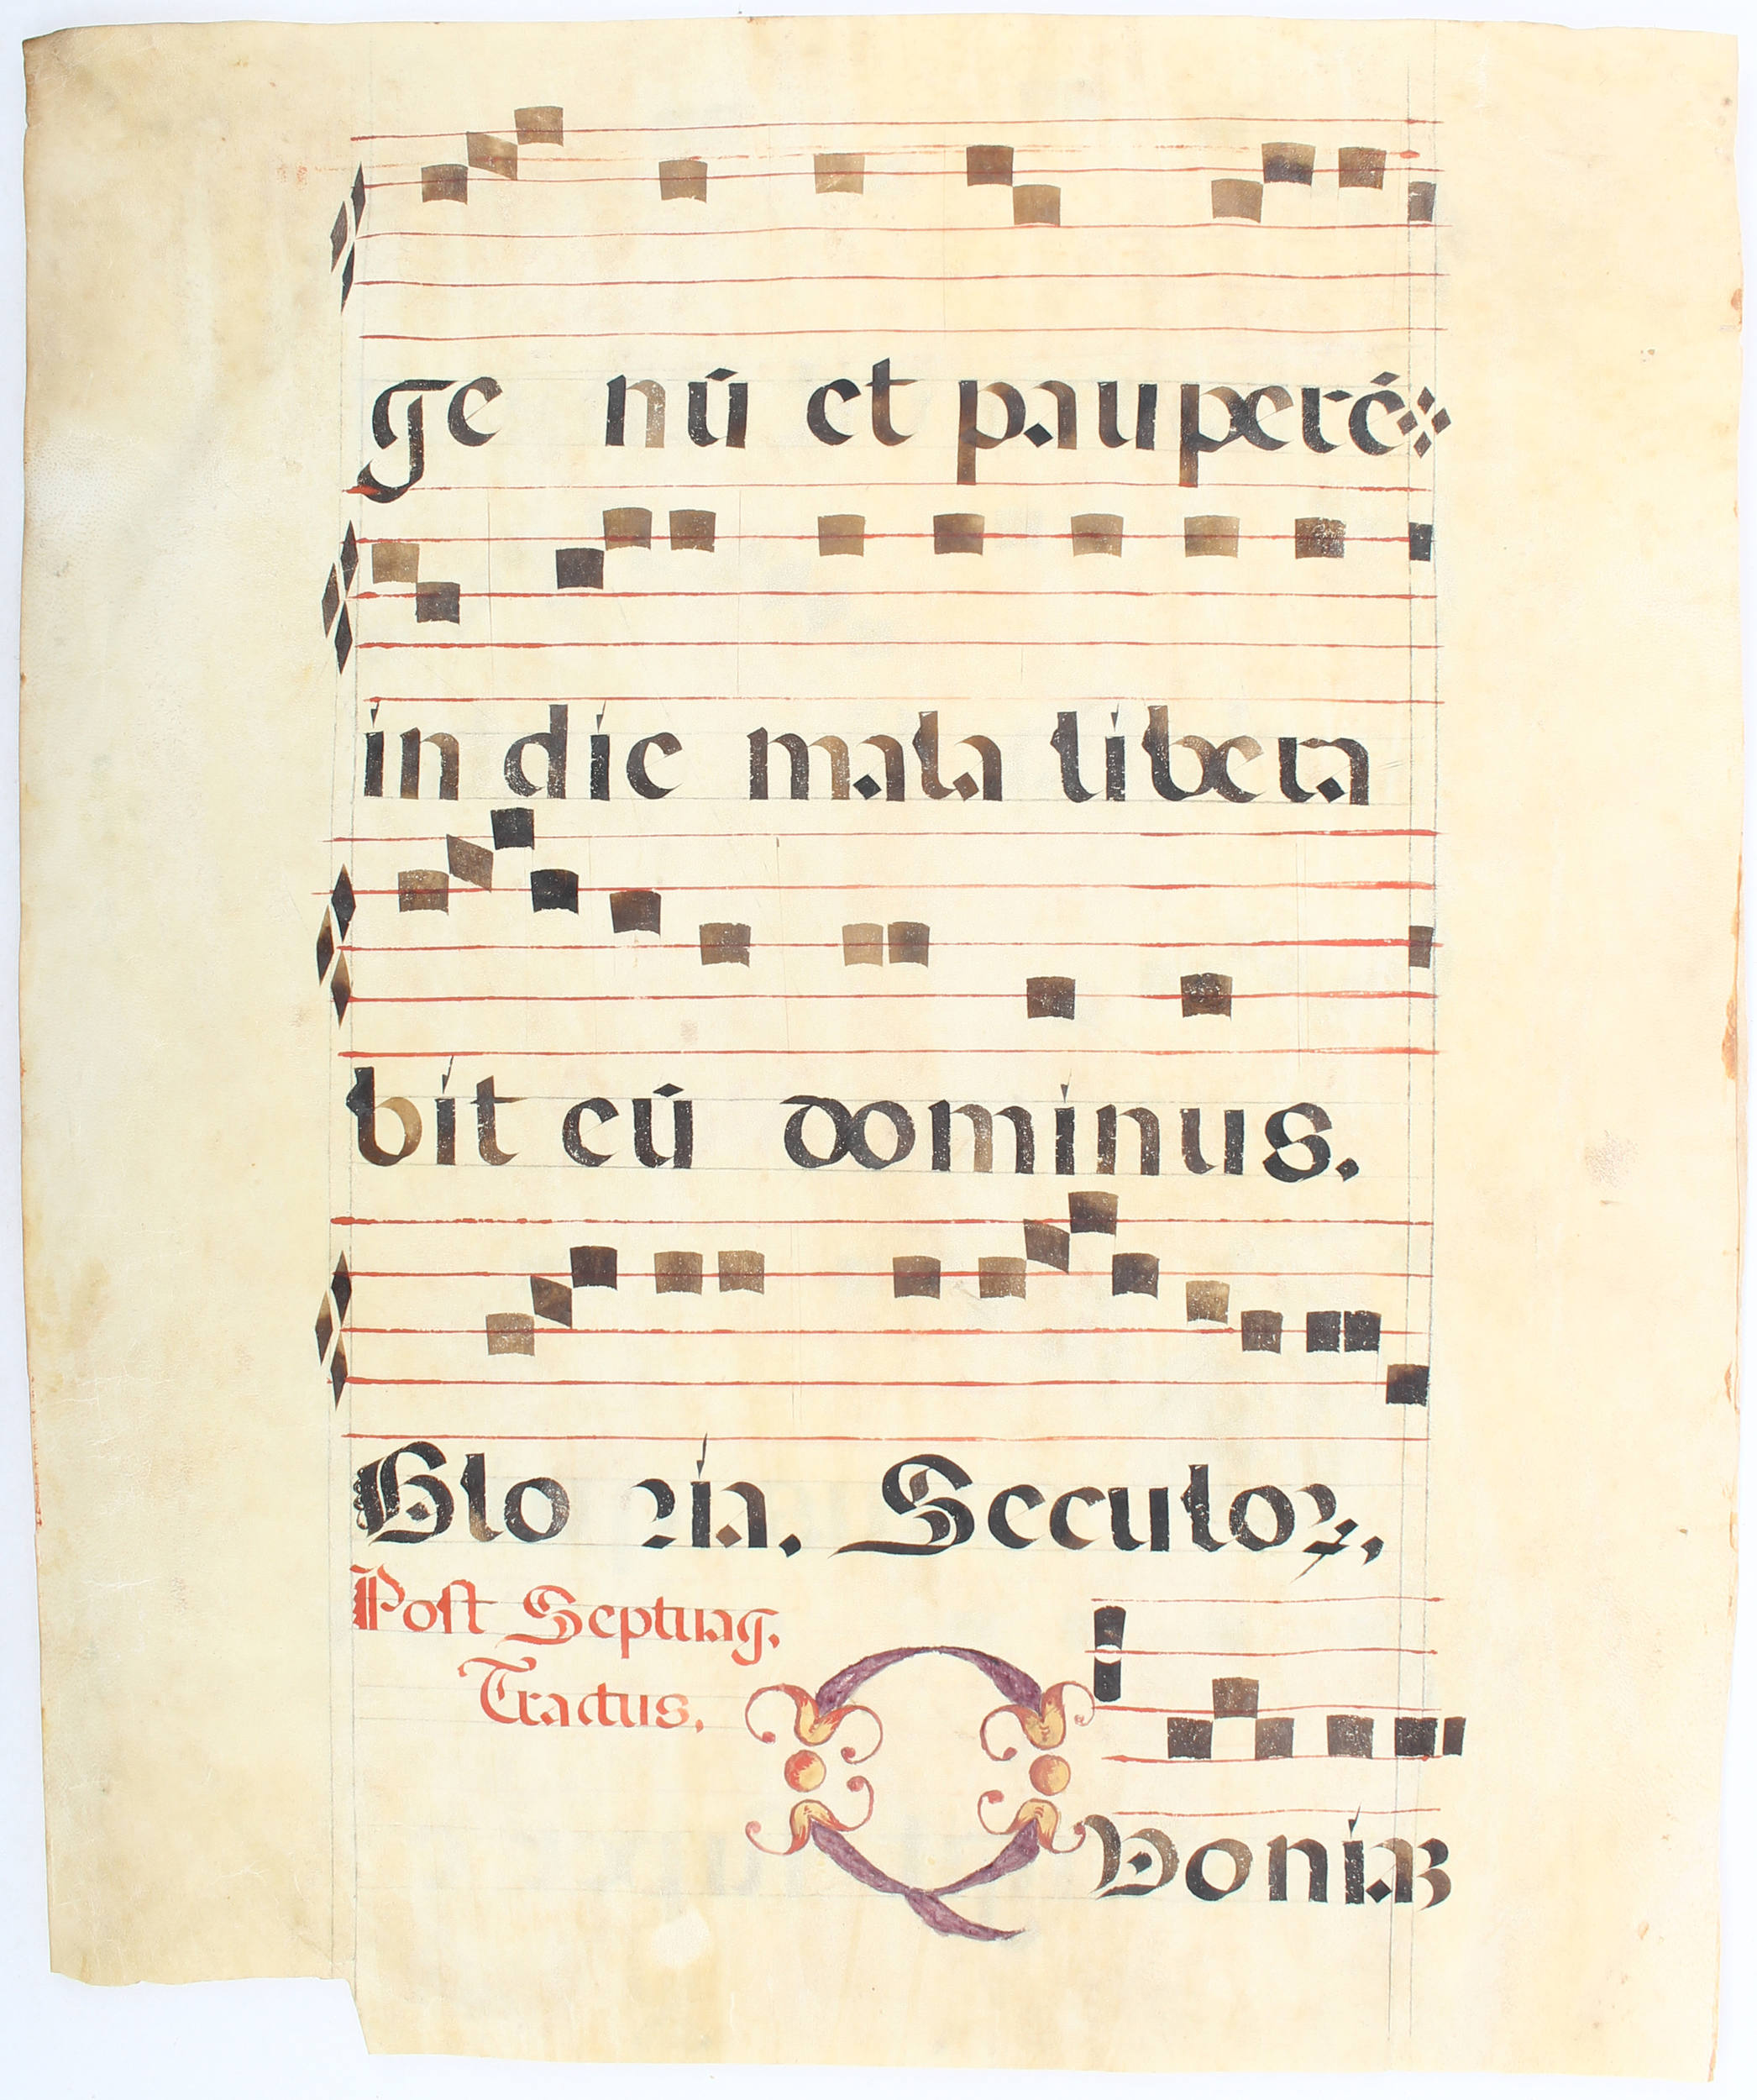 ge nū et pauperē
in die mala libera
bit eū dominus.
Glo ria. Seculoꝝ.
Post Septuag.
Tractus.
Q Voniā